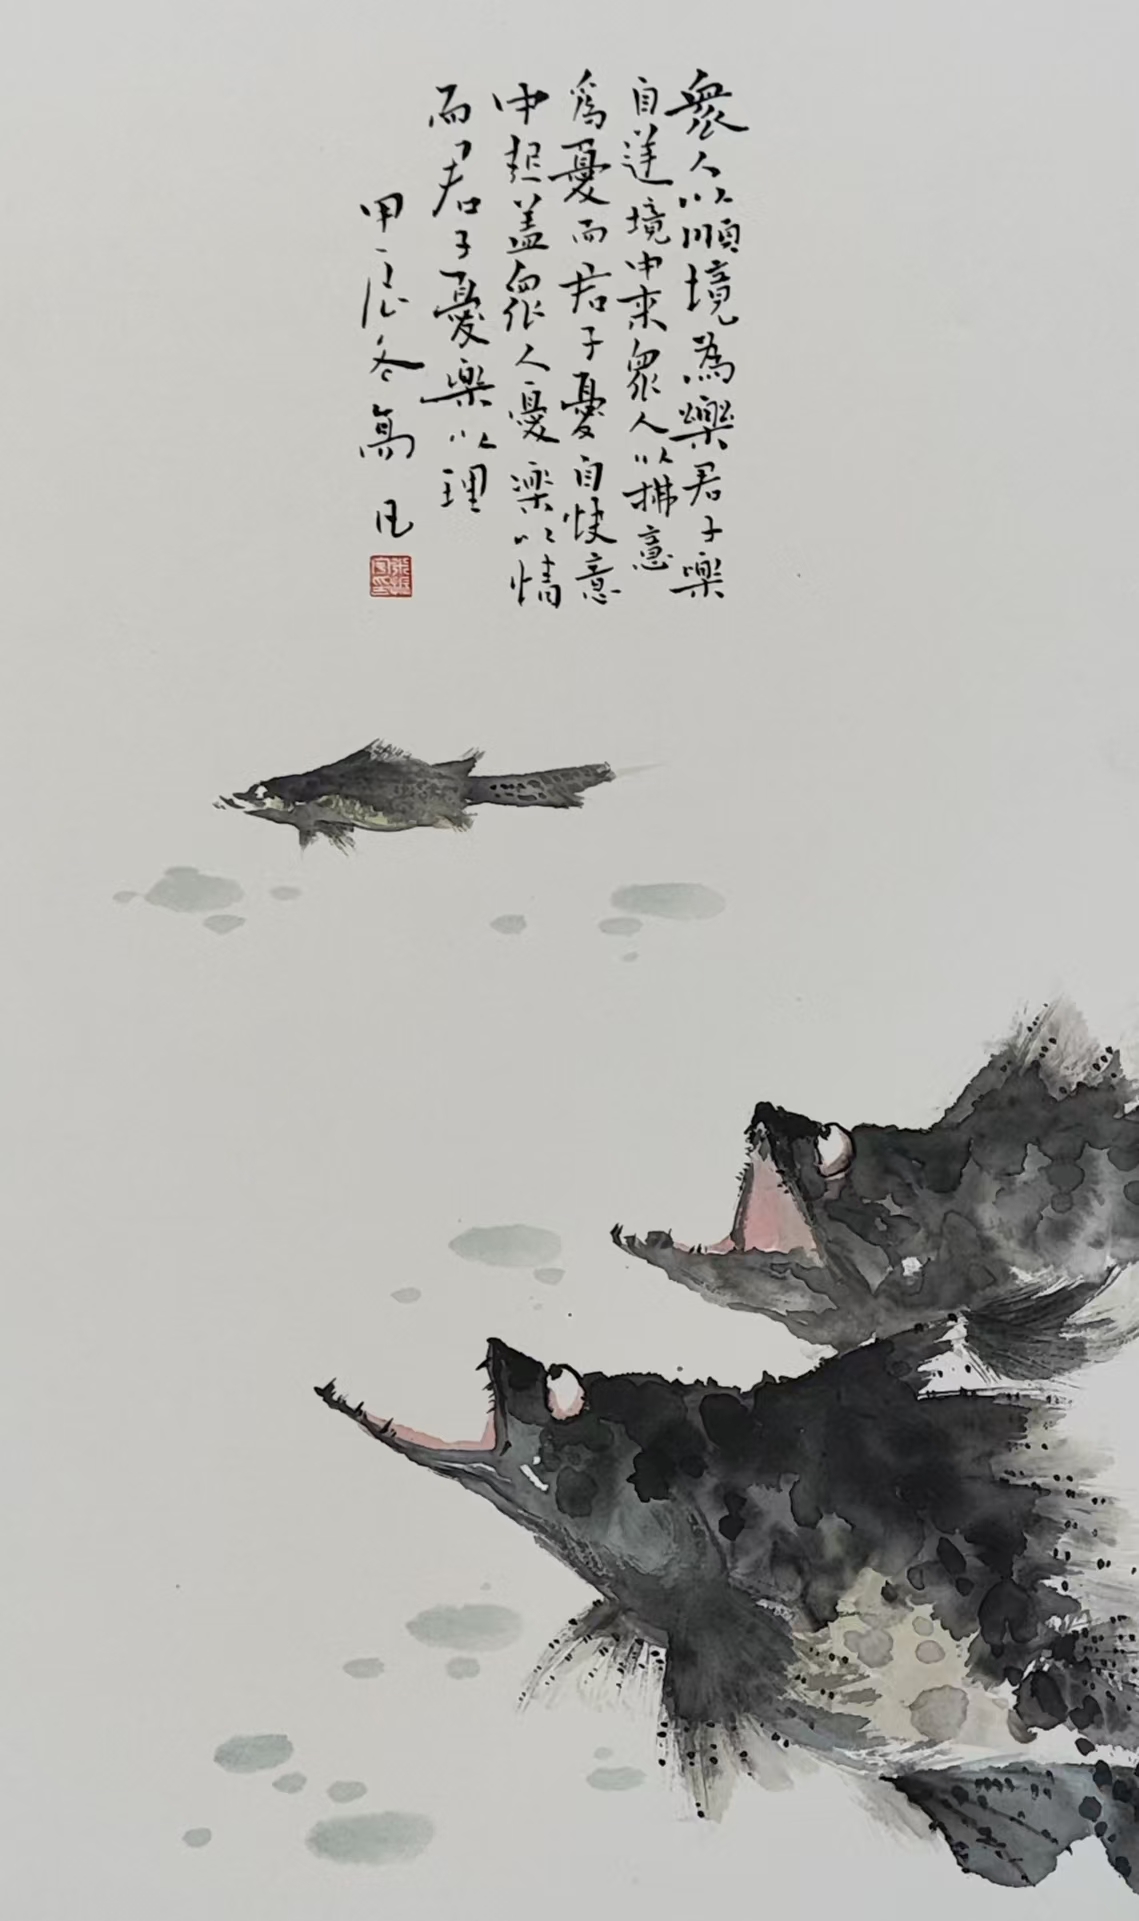 衆人以順境為樂君子樂
自逆境中來衆人以拂意
爲憂而君子憂自快意
中起蓋衆人憂樂以情
而君子憂樂以理
甲辰冬寫